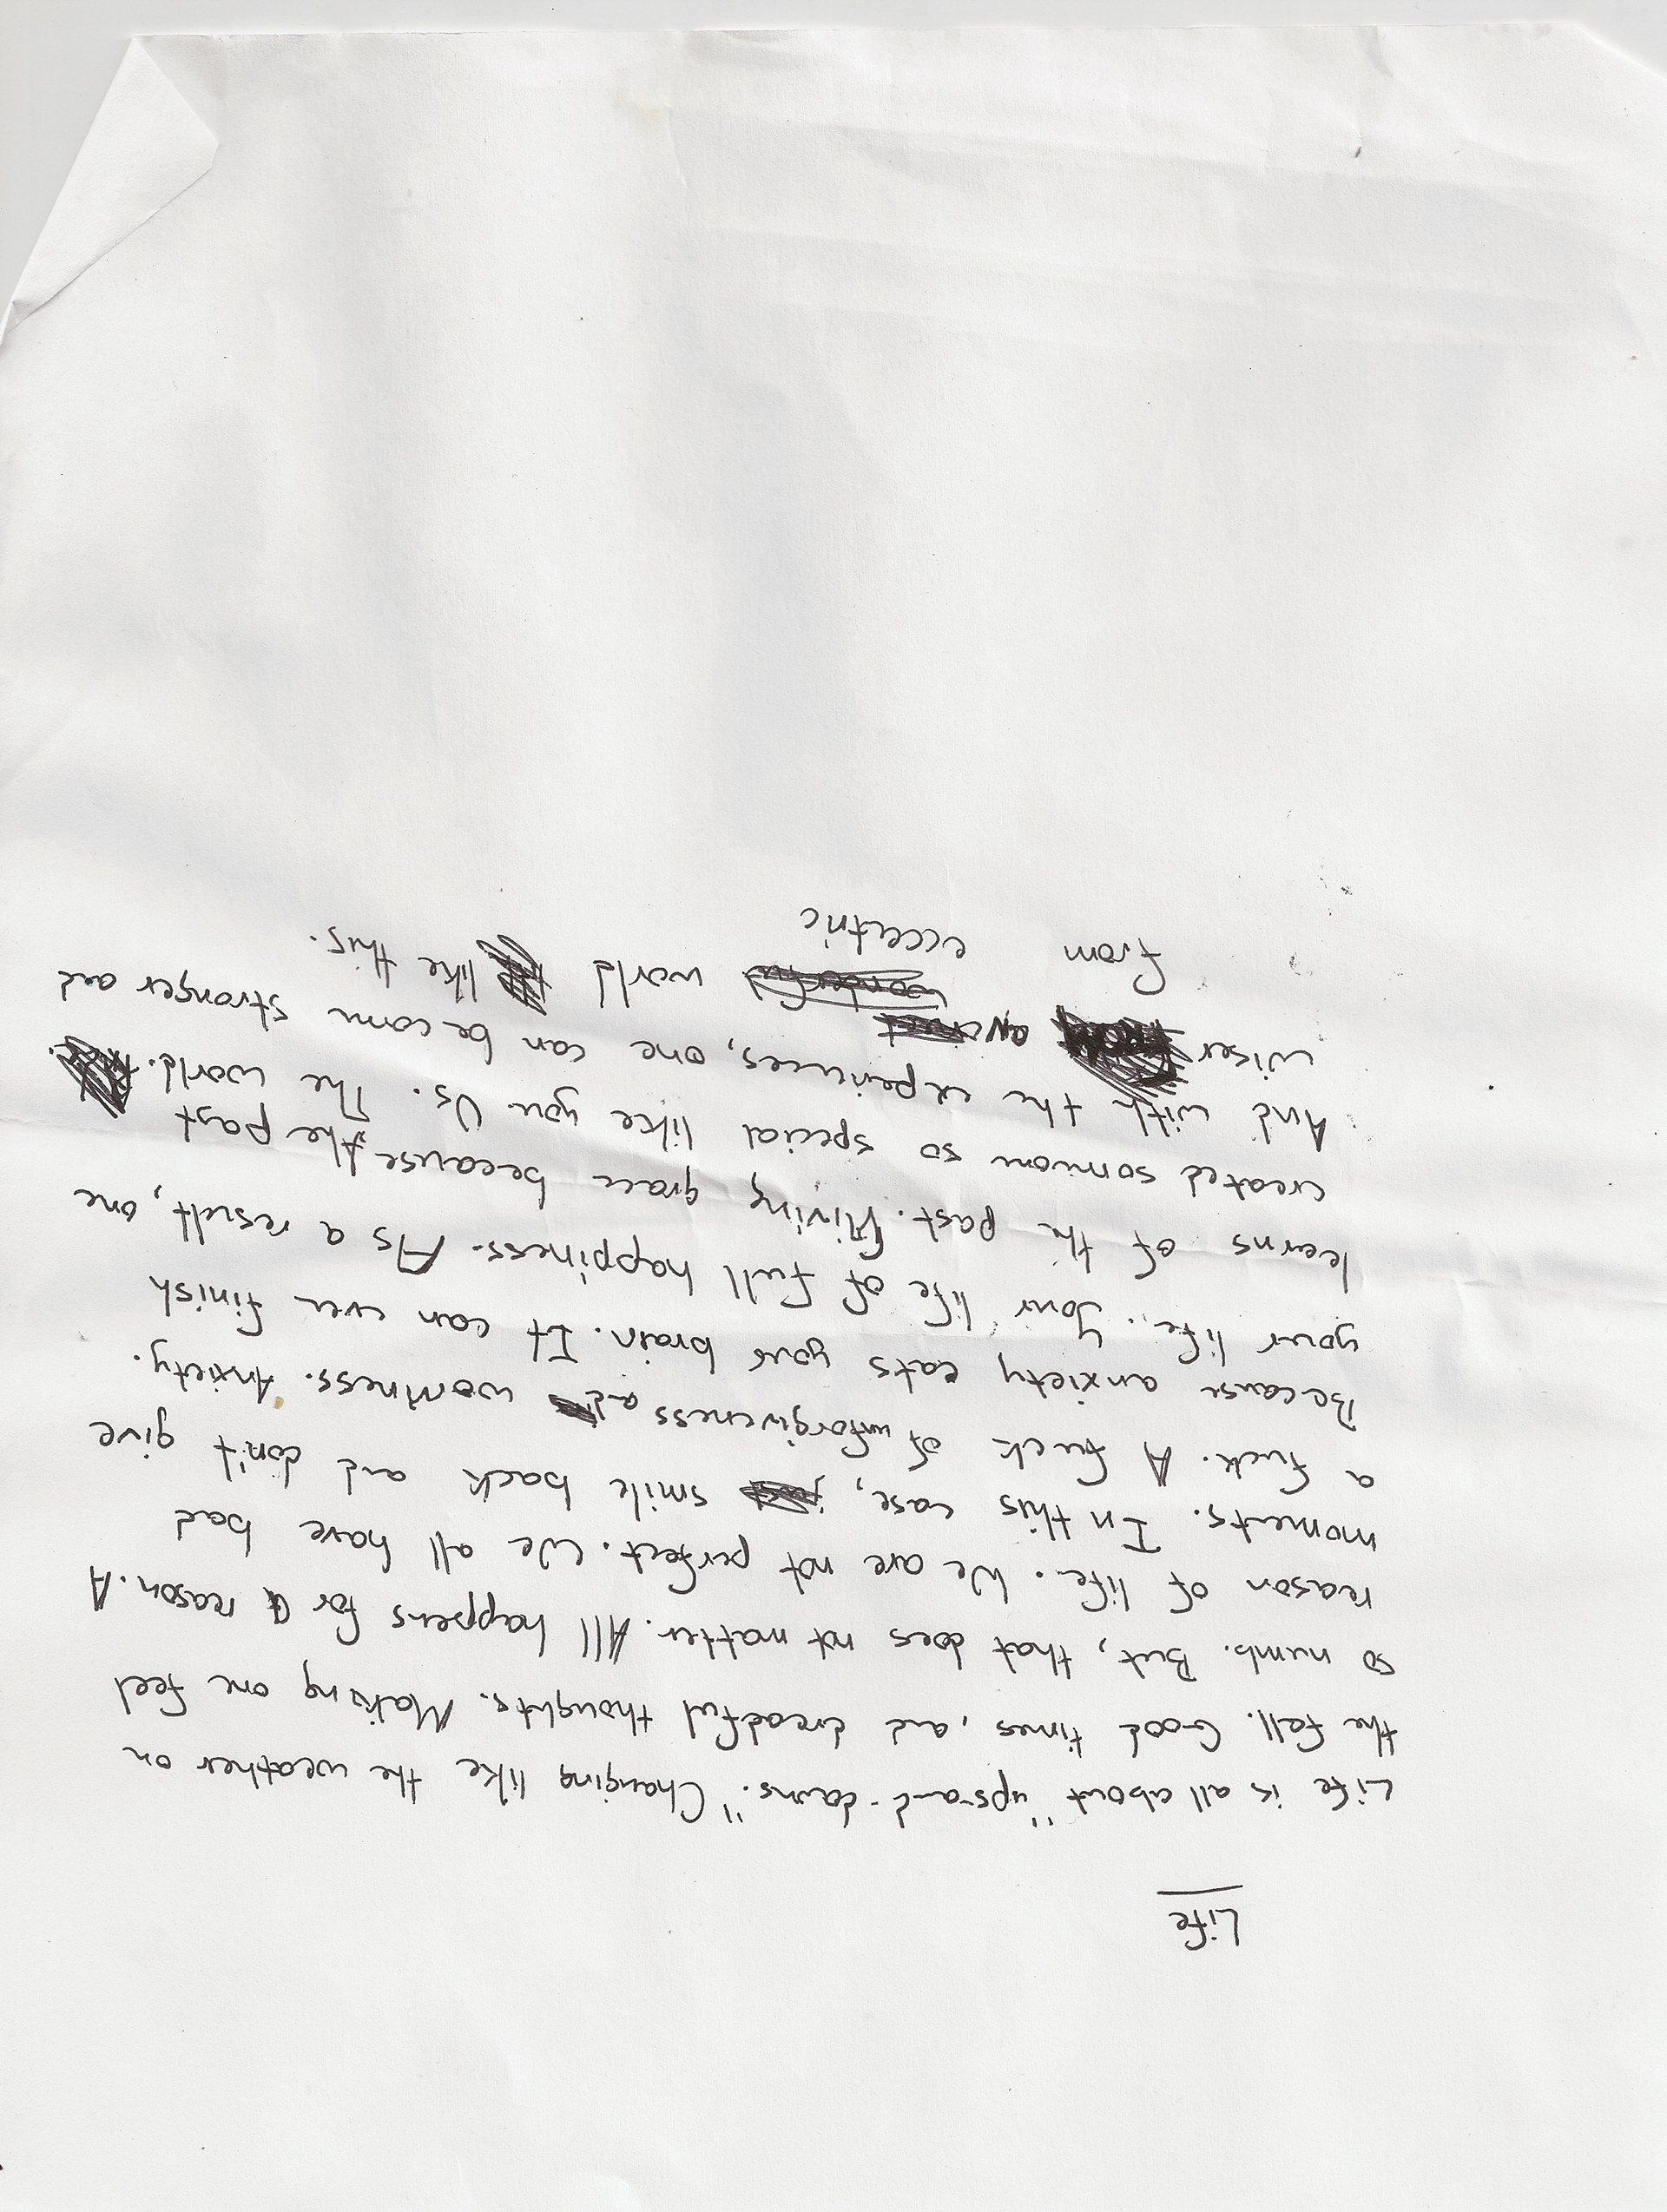 Life
Life is all about "ups-and-downs." Changing like the weather on
the fall. Good times, and dreadful thoughts. Making one feel
so numb. But, that does not matter. All happens for a reason. A
reason of life. We are not perfect. We all have bad
moments. In this case, smile back and don't give
a fuck. A fuck of unforgiveness and worriness. Anxiety.
Because anxiety eats your brain. It can even finish
your life. Your life of full happiness. As a result, one
learns of the past. Giving grace because the past
created someone so special like you Us. The world.
And with the experiences, one can become stronger and
wiser an world like this.
from eccentric